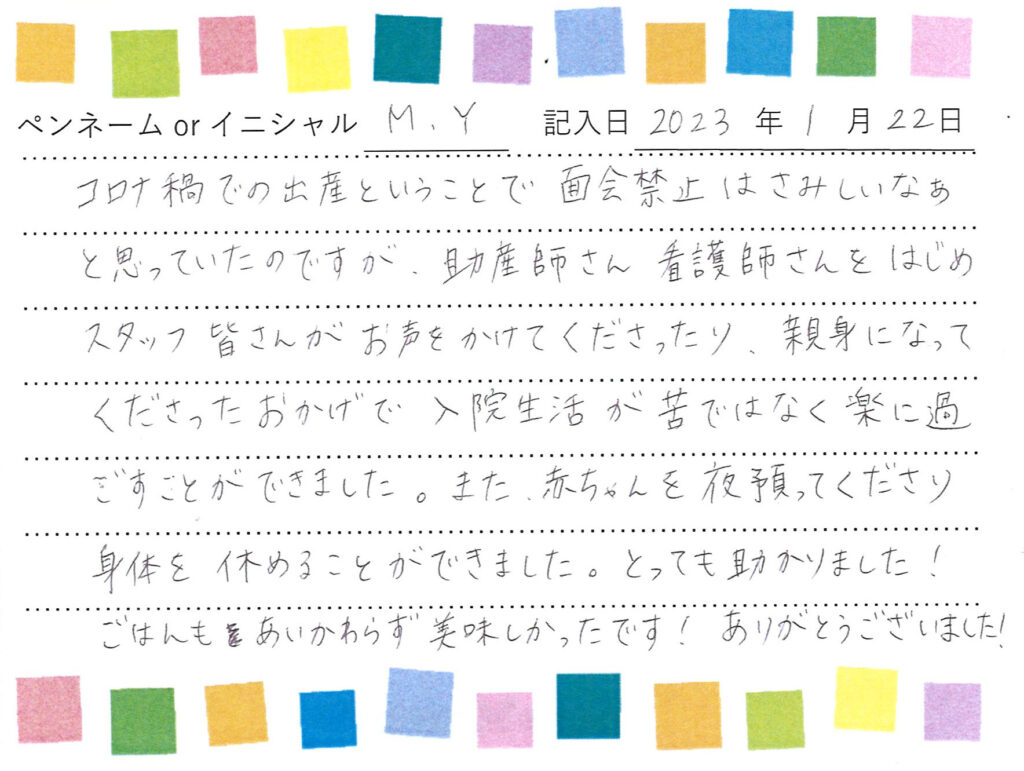 ペンネーム or イニシャル M.Y 記入日 2023 年 1 月 22 日
コロナ禍での出産ということで 面会禁止はさみしいなぁ
と思っていたのですが、助産師さん 看護師さんをはじめ
スタッフ皆さんがお声をかけてくださったり、親身になって
くださったおかげで 入院生活が苦ではなく楽に過
ごすことができました。また、赤ちゃんを夜預ってくださり
身体を 休めることができました。とっても助かりました！
ごはんも あいかわらず美味しかったです！ ありがとうございました！